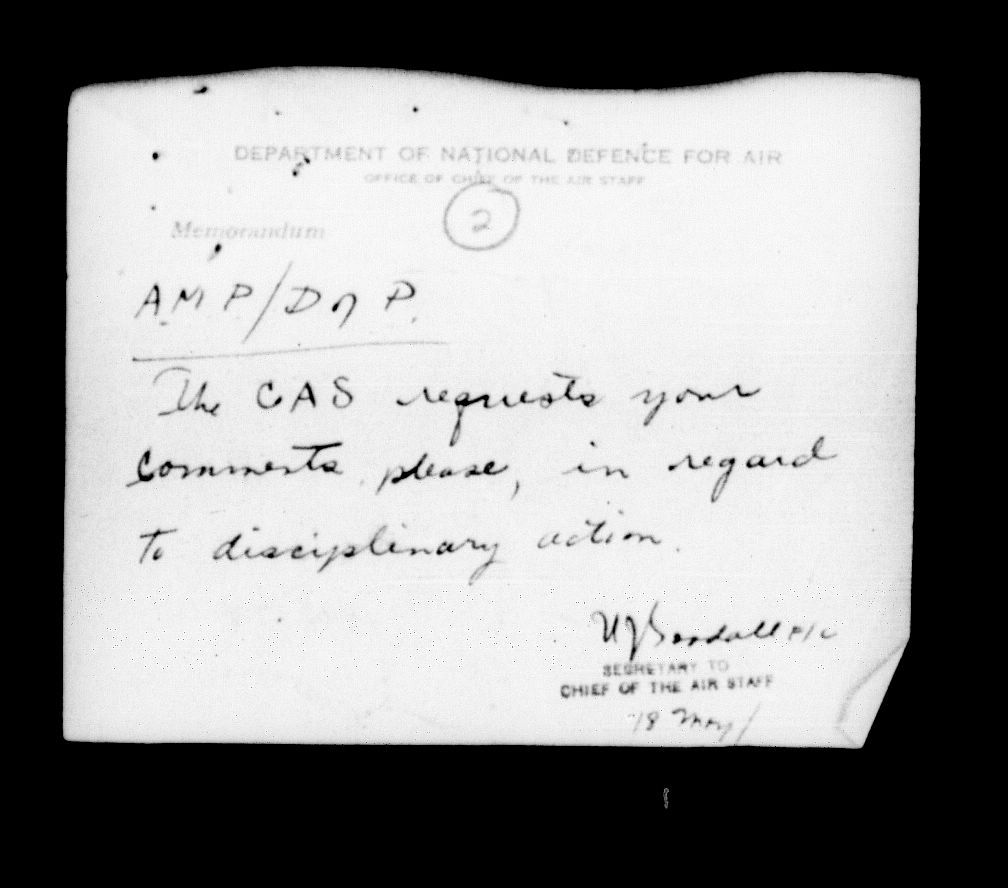 DEPARTMENT OF NATIONAL DEFENCE FOR AIR
OFFICE OF CHIEF OF THE AIR STAFF
2
Memorandum
A.M.P/D of P.
The CAS requests your
comments please, in regard
to disciplinary action.
F/L
SECRETARY TO
CHIEF OF THE AIR STAFF
18 May/